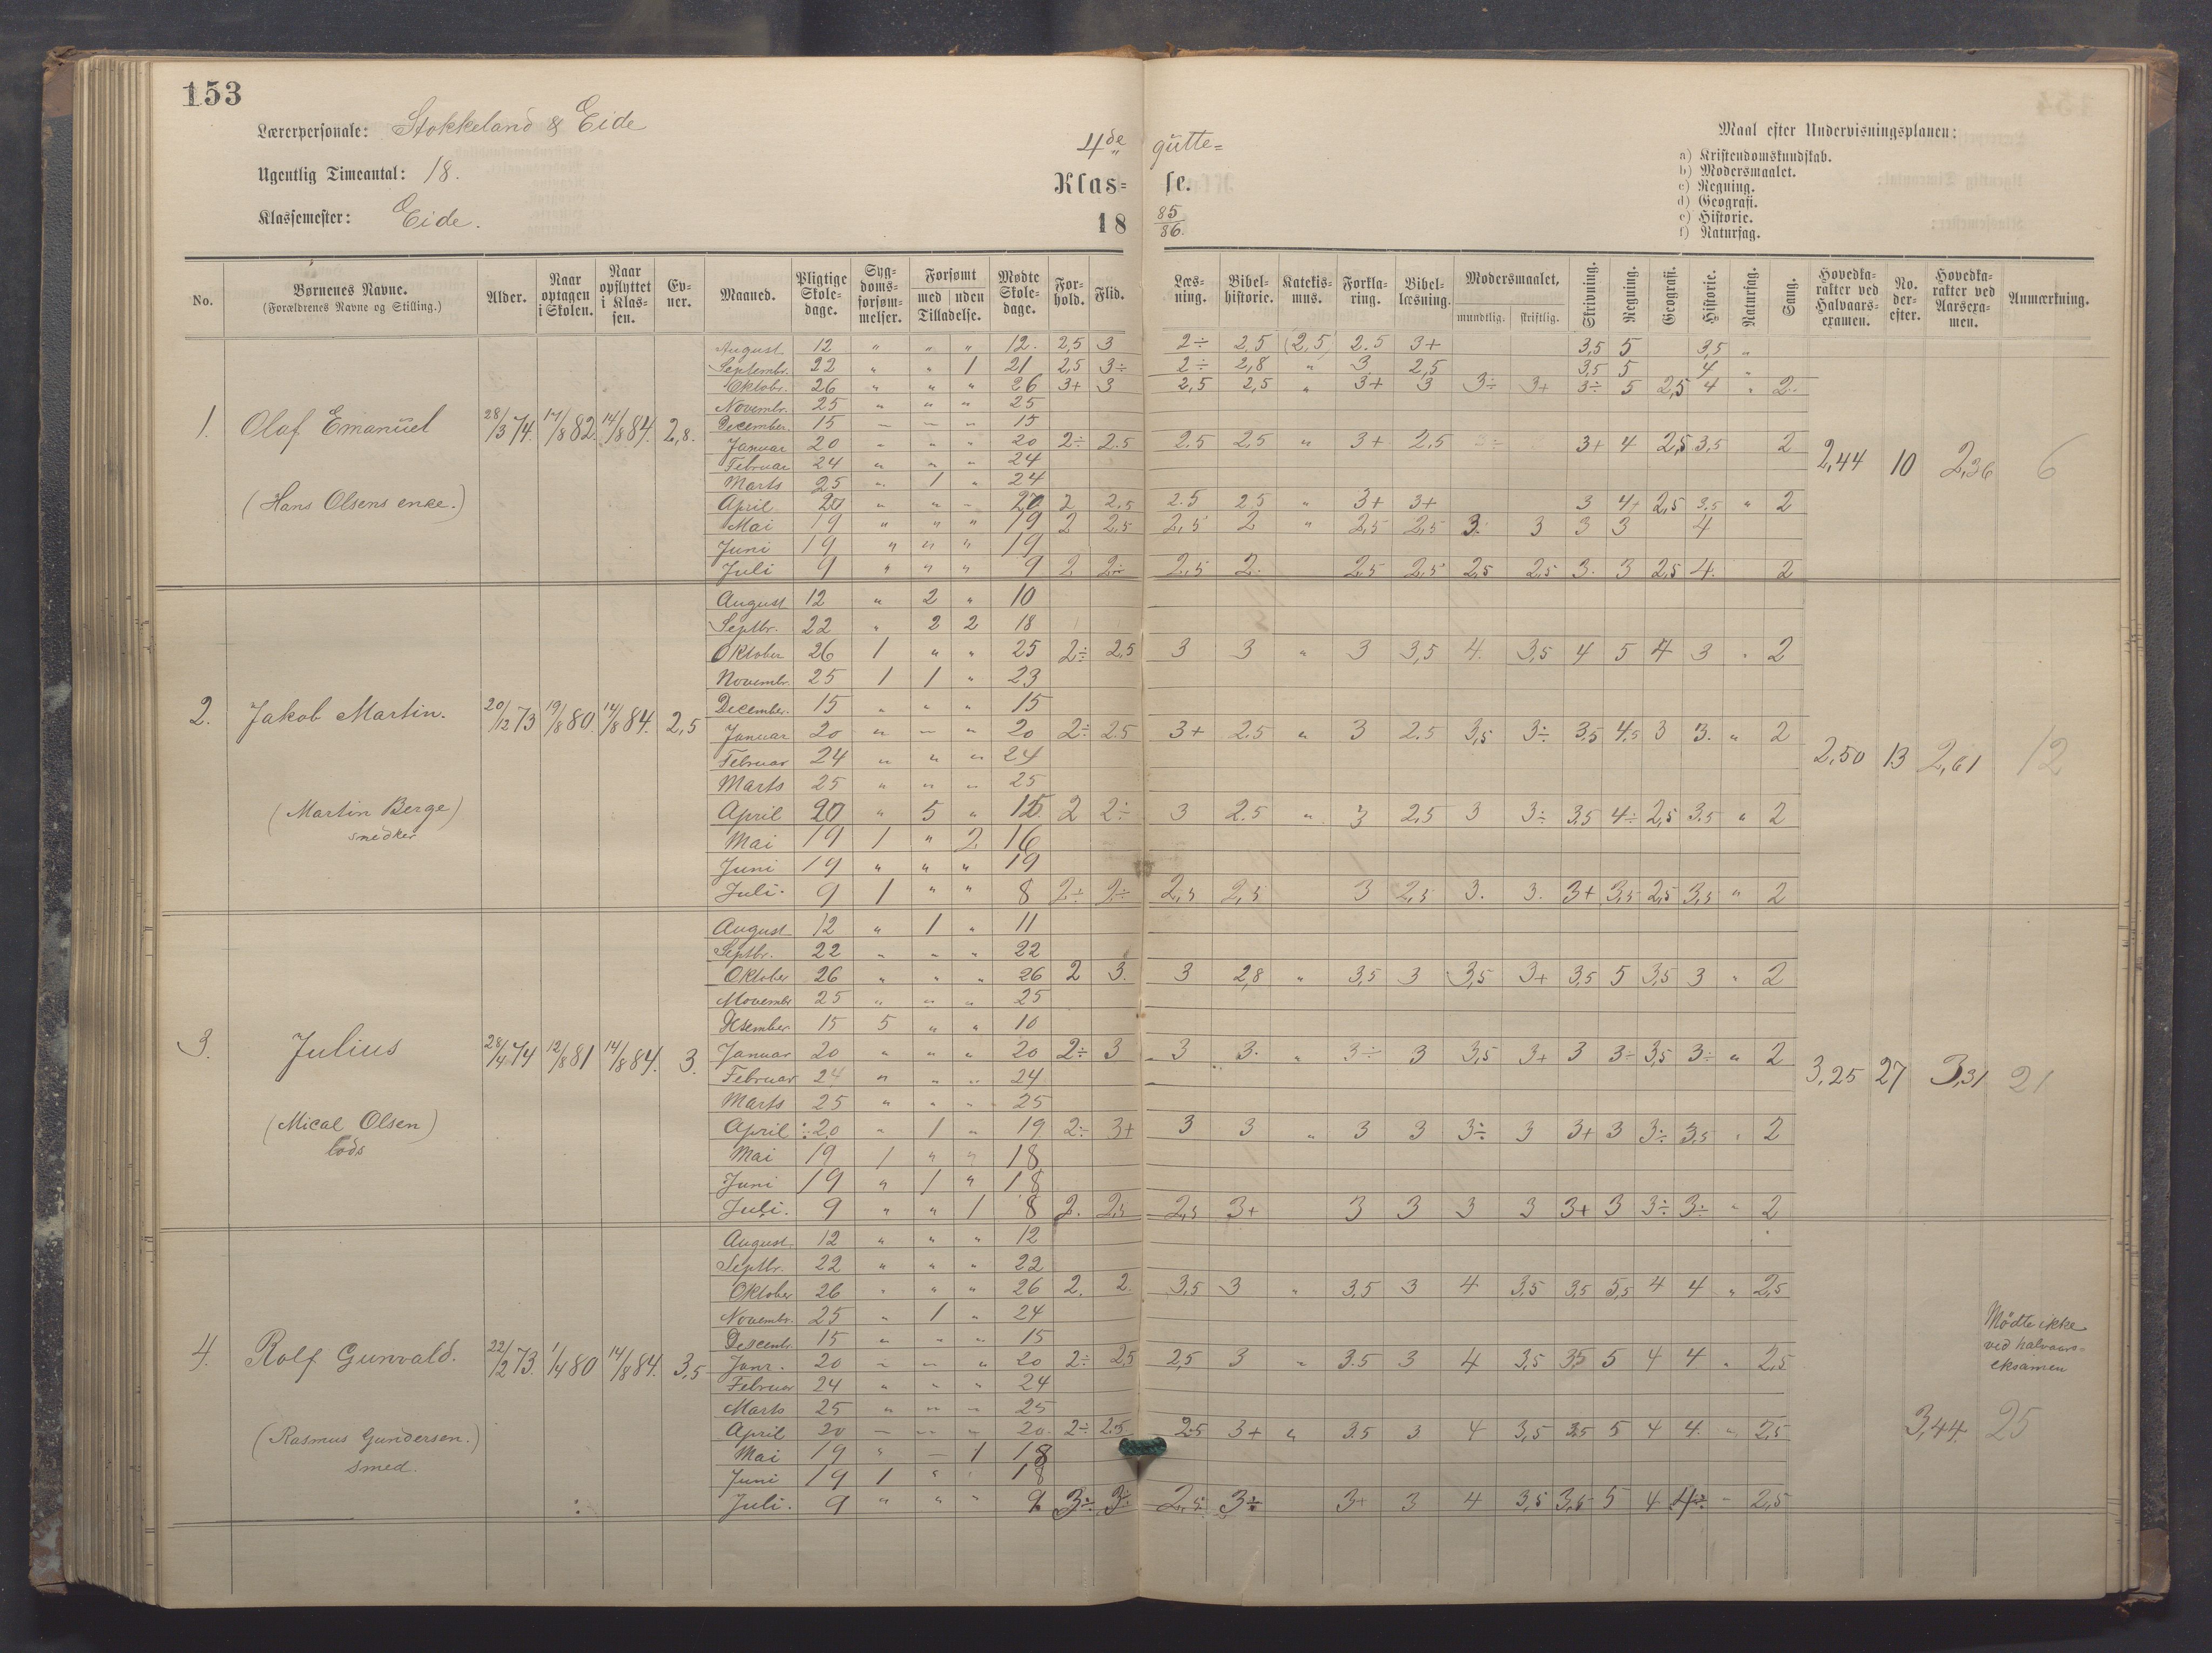 153
Lærerpersonale: Stokkeland & Eide
Ugentlig Timeantal: 18.
Klassemester: Eide.
4de gutte=
Klas= se.
18 85/86.
Maal efter Undervisningsplanen:
a) Kristendomskundskab.
b) Modersmaalet.
c) Regning.
d) Geografi.
e) Historie.
f) Naturfag.
No. | Børnenes Navne. (Forældrenes Navne og Stilling.) | Alder. | Naar optagen i Skolen. | Naar opflyttet i Klas-sen. | Ev-ner. | Maaned. | Pligtige Skole-dage. | Syg-doms-forsøm-melser. | Forsømt med uden Tilladelse. | Mødte Skole-dage. | For-hold. | Flid. | Læs-ning. | Bibel-historie. | Katekis-mus. | Forkla-ring. | Bibel-læsning. | Modersmaalet, mundtlig. skriftlig. | Skrivning. | Regning. | Geografi. | Historie. | Naturfag. | Sang. | Hovedka-rakter ved Halvaars-examen. | No. der-efter. | Hovedka-rakter ved Aarsexa-men. | Anmærkning.
1. Olaf Emanuel 28/3 74. 17/8 82. 14/8 84. 2,8.
(Hans Olsens enke.)
August 12 " " " 12. 2,5 3 2÷ 2,5 (2,5) 2.5 3+ 3,5 5 3,5 "
Septembr. 22 " " 1 21 2,5 3÷ 2÷ 2,8 " 3 2,5 3,5 5 4 "
Oktobr. 26 " " " 26 3+ 3 2,5 2,5 " 3+ 3 3÷ 3+ 3÷ 5 2,5 4 " 2.
Novembr. 25 " " " 25
December 15 — — " 15
Januar 20 " " " 20 2÷ 2.5 2.5 2.5 " 3+ 2.5 3÷ 3+ 4 2,5 3,5 2
Februar 24 " " " 24
Marts 25 " 1 " 24
April 20 " " " 20 2 2.5 2.5 2.5 " 3+ 3+ 3 4+ 2,5 3,5 " 2
Mai 19 " " " 19 2 2,5 2,5 2 " 2,5 2,5 3. 3 3 3 4
Juni 19 " " " 19
Juli 9 " " " 9 2 2÷ 2,5 2. 2,5 2,5 2,5 2,5 3. 3 2,5 4. 2
2,44 10 2,36 6
2. Jakob Martin. 20/12 73 19/8 80. 14/8 84. 2,5
(Martin Berge)
snedker
August 12 " 2 " 10
Septbr. 22 " 2 2 18
Oktober 26 1 " " 25 2÷ 2.5 3 3 " 3 3,5 4. 3,5 4 5 4 3 " 2
Novembr. 25 1 1 " 23
December. 15 " " " 15
Januar 20 " — " 20 2÷ 2.5 3+ 2.5 " 3 2.5 3,5 3÷ 3.5 4.5 3 3. " 2
Februar 24 " " " 24
Marts 25 " " " 25
April 20 " 5 " 15 2 2÷ 3 2.5 " 3 2,5 3 3÷ 3.5 4÷ 2,5 3.5 " 2
Mai 19 1 " 2 16
Juni 19 " " " 19
Juli. 9 1 " " 8 2÷ 2÷ 2,5 2,5 3 2,5 3. 3. 3+ 3,5 2,5 3,5 " 2
2,50 13 2,61 12
3. Julius 28/4 74 12/8 81 14/8 84. 3.
(Mical Olsen)
lods
August 12 " 1 " 11
Septbr. 22 " " " 22
Oktober 26 " " " 26 2 3. 3 2,8 " 3,5 3 3,5 3+ 3,5 5 3,5 3 " 2
Novembr 25 " " " 25
Desember 15 5 " " 10
Januar 20 " " " 20 2÷ 3 3 3. " 3÷ 3 3,5 3+ 3 3÷ 3,5 3÷ " 2
Februar 24 " " " 24
Marts 25 " " " 25
April 20 " 1 " 19 2÷ 3+ 3 3 " 3 3 3÷ 3 3+ 3 3÷ 3,5 " 2
Mai 19 1 " " 18
Juni 19 " 1 " 18
Juli. 9 " " 1 8 2. 2,5 2,5 3+ 3 3 3 3 3+ 3 3÷ 3÷ " 2
3,25 27 3,31 21
4. Rolf Gunvald. 22/2 73. 1/4 80 14/8 84. 3,5
(Rasmus Gundersen.)
Smed.
August. 12 " " " 12
Septbr. 22 " " " 22
Oktober 26 " " " 26 2. 2. 3,5 3 " 3,5 3 4 3,5 3,5 5,5 4 4 " 2,5
Novembr. 25 " 1 " 24
Descemb. 15 " " " 15
Janr. 20 — — " 20 2÷ 2,5 2,5 3 " 3.5 3 4 3,5 3,5 5 4 4 " 2,5
Februar 24 " " " 24
Marts 25 " " — 25
April 20 — — " 20. 2÷ 2.5 2.5 3+ " 3.5 3 4 3,5 3,5 5 4 4. " 2,5
Mai 19 " — 1 18
Juni 19 1 " " 18
Juli. 9 " " " 9 3÷ 3÷ 2,5 3÷ 3+ 3 4 3,5 3,5 5 4 4÷ — 2,5
Mödte ikke
ved halvaars=
eksamen
3,44. 25